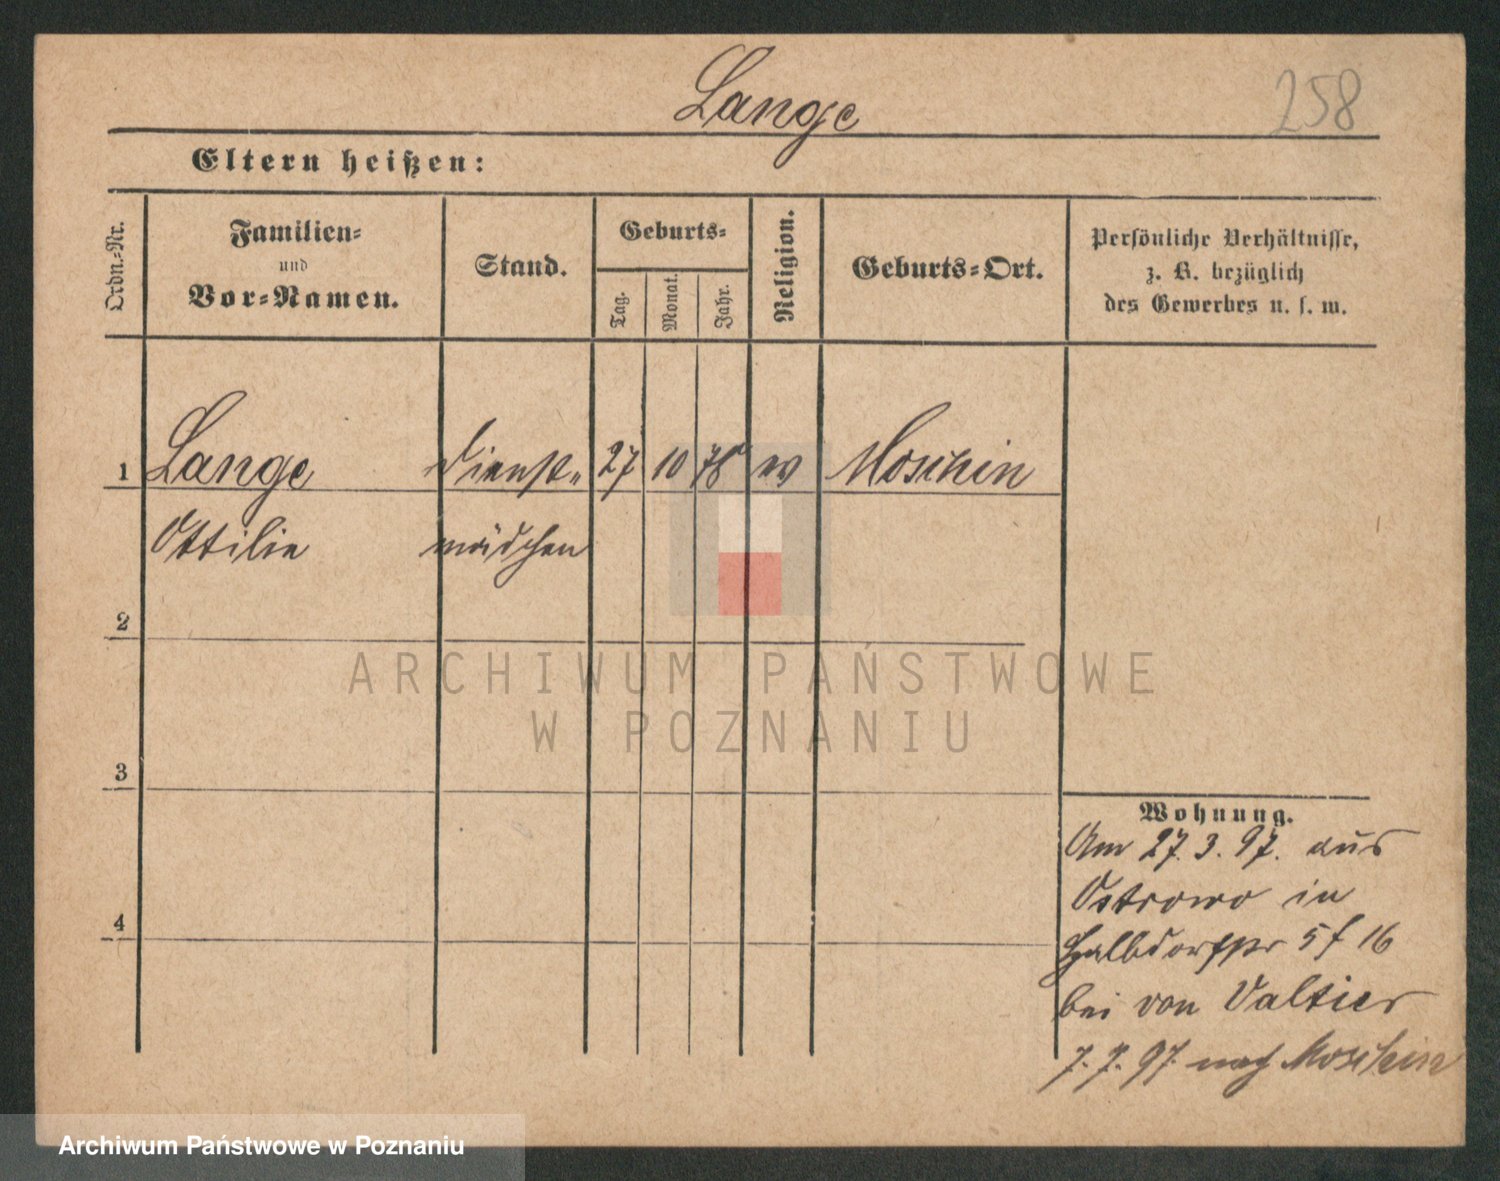 Lange
258
Eltern heißen:
Ordn.-Nr.
Familien-
und
Vor-Namen.
Stand.
Geburts-
Tag.
Monat.
Jahr.
Religion.
Geburts-Ort.
Persönliche Verhältnisse,
z. B. bezüglich
des Gewerbes u. s. w.
1 Lange Dienst- 27 10 78 ev Moschin
Ottilie mädchen
2
3
4
Wohnung.
Am 27. 3. 97. aus
Ostrowo in
Halbdorfstr 5 16
bei von Valtier
7. 7. 97. nach Moschin
ARCHIWUM PAŃSTWOWE
W POZNANIU
Archiwum Państwowe w Poznaniu